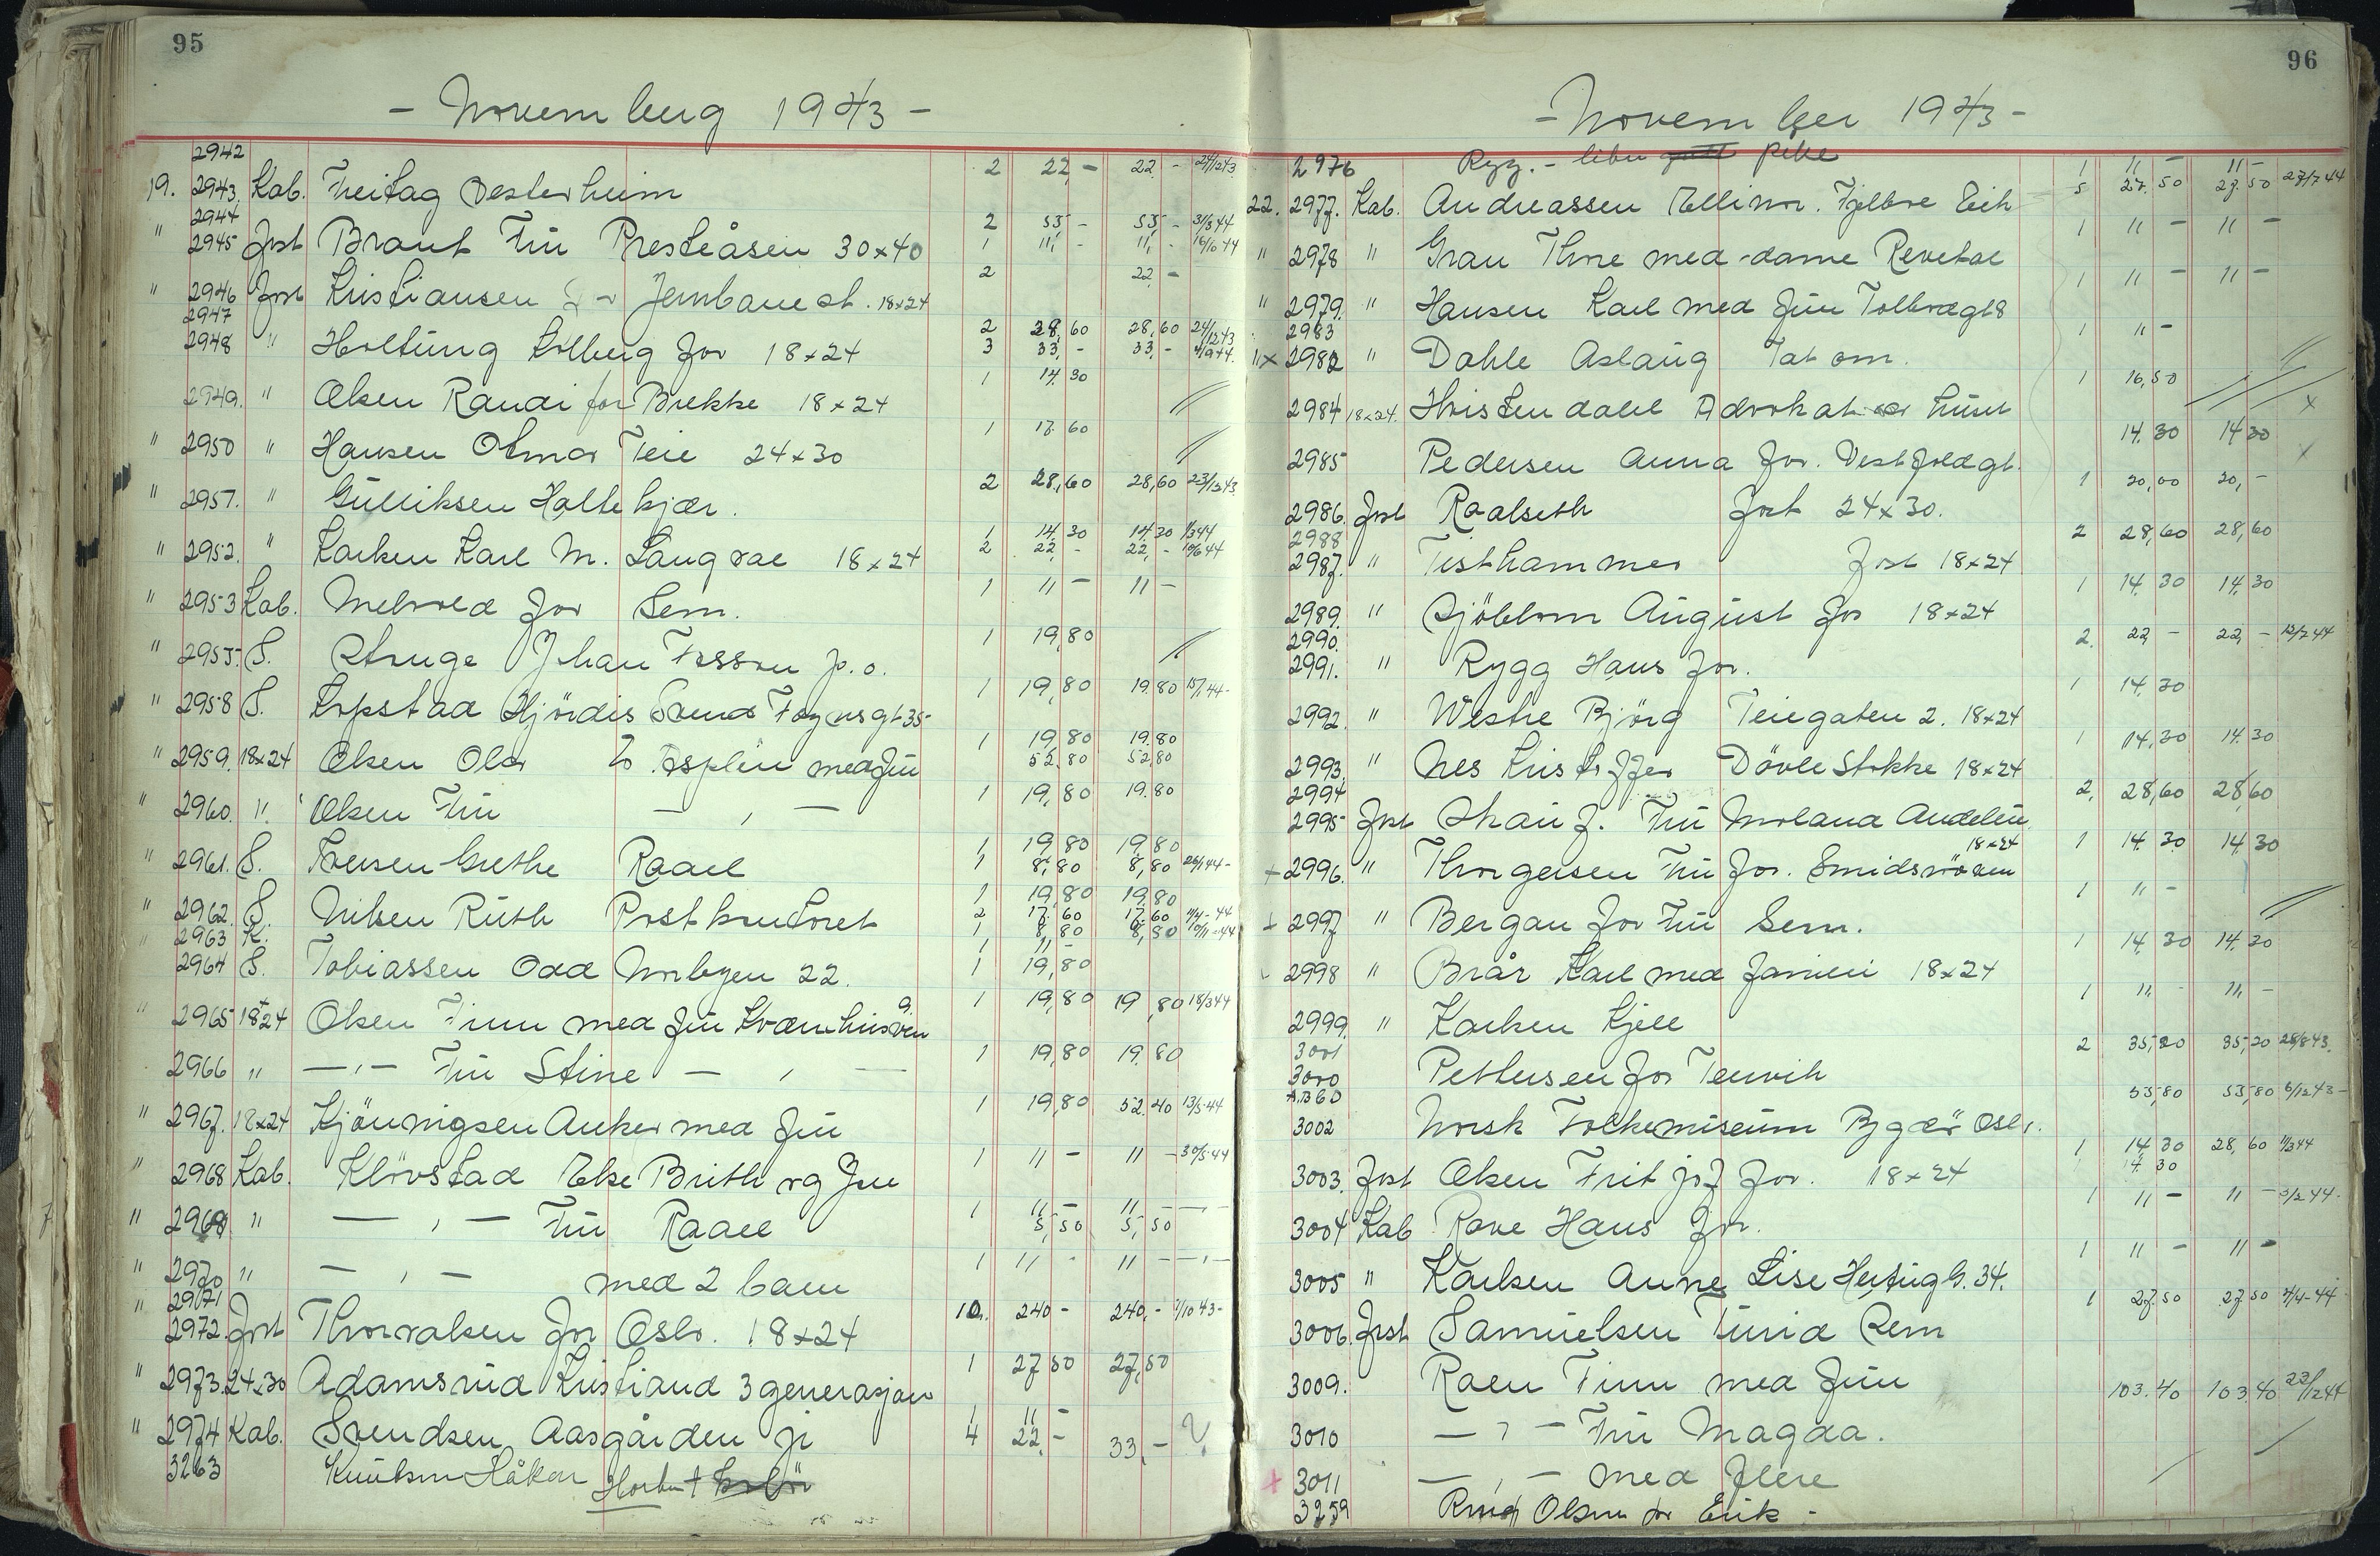 95
- November 1943 -
2942 2 22,- 22,- 24/12 43
19. 2943. Kab. Freitag Vesterheim
2944 2 55 - 55,- 31/3 44
" 2945 Post Braut Fru Presteåsen 30x40 1 11,- 11,- 16/10 44
2 22 -
" 2946 Post Kristiansen Jernbane st. 18x24
2947 2 28,60 28,60 24/12 43
2948 " Holtung Solberg for 18x24 3 33,- 33,- 4/9 44.
1 14,30
2949. " Olsen Randi for Brekke 18x24
1 17.60
" 2950 " Hansen Otmar Teie 24x30
2 28,60 28,60 23/12 43
" 2951. " Gulliksen Holtekjær.
1 14,30 14,30 1/3 44
" 2952. " Karlsen Karl M. Langvae 18x24 2 22 - 22,- 10/6 44
1 11 - 11 -
" 2953 Kab. Melsold for Sem.
1 19,80
" 2955. S. Stange Johan Fosson p.o.
1 19,80 19,80 15/1 44-
" 2958 S. Kopstad Hjördis Svend Foynsgt 35
1 19,80 19.80
" 2959. 18x24 Olsen Olav Asplin med fru 52,80 52,80
1 19,80 19.80
" 2960. " Olsen Fru — , —
1 19,80 19,80
" 2961. S. Iversen Grethe Raael 1 8,80 8,80 26/1 44-
1 19,80 19,80
" 2962. S. Nilsen Ruth Postkontoret 2 17.60 17.60 11/4-44
" 2963 K. 1 8,80 8,80 10/11-44
1 11 -
2964 S. Tobiassen Odd Norbyen 22. 1 19,80
1 19,80 19,80 18/3 44
" 2965 18x24 Olsen Finn med fru Kvænhusveien
1 19,80 19.80
2966 " — , — Fru Stine — , —
1 19,80 52.40 13/5-44
" 2967. 18x24 Kjönnigsen Anker med fru
1 11 - 11 - 30/5-44
" 2968 Kab. Klövstad Else Brith og Jne
1 11 - 11 -
" 2969 " — , — Fru Raael 5,50 5,50
1 11 - 11 -
" 2970 " — , — med 2 barn
" 2971 10. 240 - 240,- 1/10 43-
2972. Post Thorvalsen for Oslo. 18x24
1 27,50 27,50
" 2973. 24x30 Adamsrud Kristiand 3 generasjon
1 11 -
" 2974 Kab. Svendsen Aasgården ji 4 22,- 33,- ?
3263 Knutsen Håkon Horten
96
- November 1943 -
2976 Ryg. - liten gutt pike 1 11 - 11 -
22. 2977. Kab. Andreassen Ellinor. Fjelltve Eik 5 27.50 27.50 27/7 44
1 11 - 11 -
" 2978 " Grau Thore med dame Revetal
1 11 - 11 -
" 2979. " Hansen Karl med fru Tolbodgt 8
2983 1 11 -
" x 2982 " Dahle Aslaug Tat om.
1 16,50
2984 18x24. Hvistendahl Advokat
14,30 14,30
2985 Pedersen Anna for. Vestfoldgt.
1 20,00 20,-
2986. Post Raalseth Post 24x30.
2988 2 28,60 28,60
2987. " Testhammer Post 18x24
1 14,30 14,30
2989. " Sjöblom August for 18x24
2990. 2. 22,- 22,- 12/2 44
2991. " Rygg Hans for.
1 14,30
2992. " Westre Björg Teiegaten 2. 18x24
1 14,30 14.30
2993. " Nes Kristoffer Dövle Stokke 18x24
2994 2, 28,60 28,60
2995 Post Skau J. Fru Moland Andebu
18x24 1 14,30 14,30
+ 2996. " Thorgersen Fru for. Smidsrödveien
1 11 -
+ 2997 " Bergan for Fru Sem.
1 14,30 14,30
2998 " Brår Karl med familie 18x24
1 11,- 11,-
2999. " Karlsen Kjell
3001 2 35,20 35,20 28/8 43.
3000 Pettersen for Tenvik
A.B60 53,80 53,80 6/12 43-
3002 Norsk Folkemuseum Bygdö Oslo.
1 14,30 28,60 11/3 44
3003. Post Olsen Fritjof for. 18x24 14.30
1 11 - 11 - 3/2 44.
3004 Kab Rove Hans for.
1 11 - 11 -
3005 " Karlsen Anne Lise Hertug G. 34.
1 27,50 27,50 4/4-44
3006. Post Samuelsen Turid Rem
3009. Roen Finn med fru 103.40 103.40 23/12 44
3010 — , — Fru Magda.
+ 3011 — , — med flere
3259 Olsen for Erik -